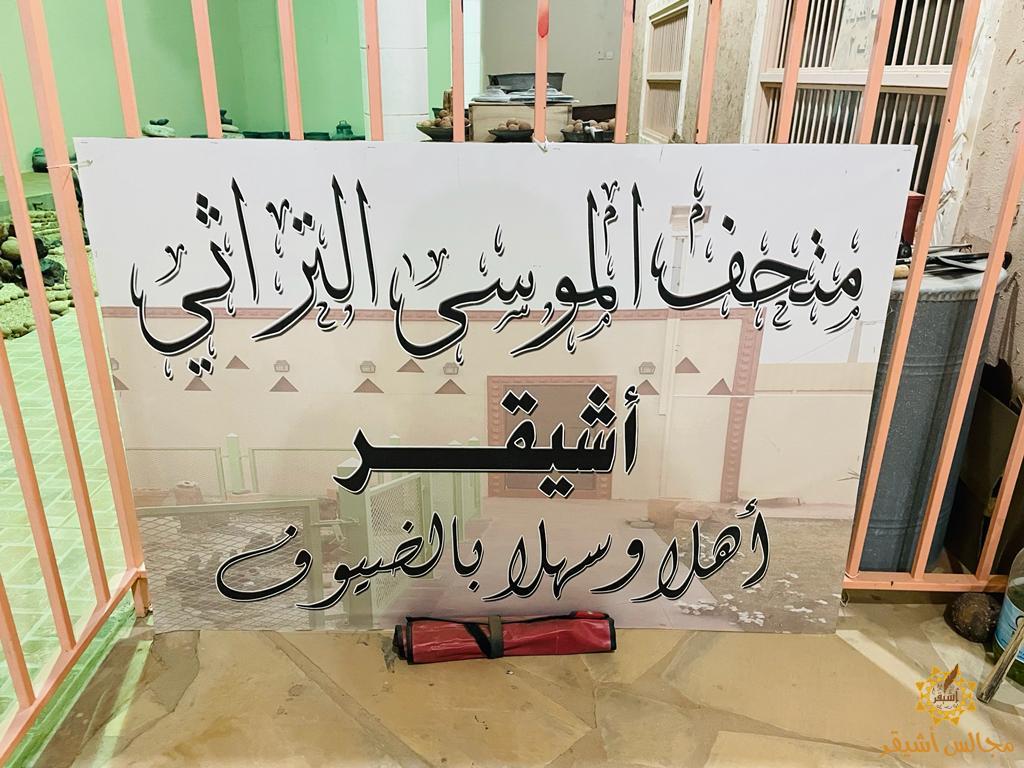 متحف الموسى التراثي
أشيقر
أهلا وسهلا بالضيوف
أشيقر
مجالس أشيقر